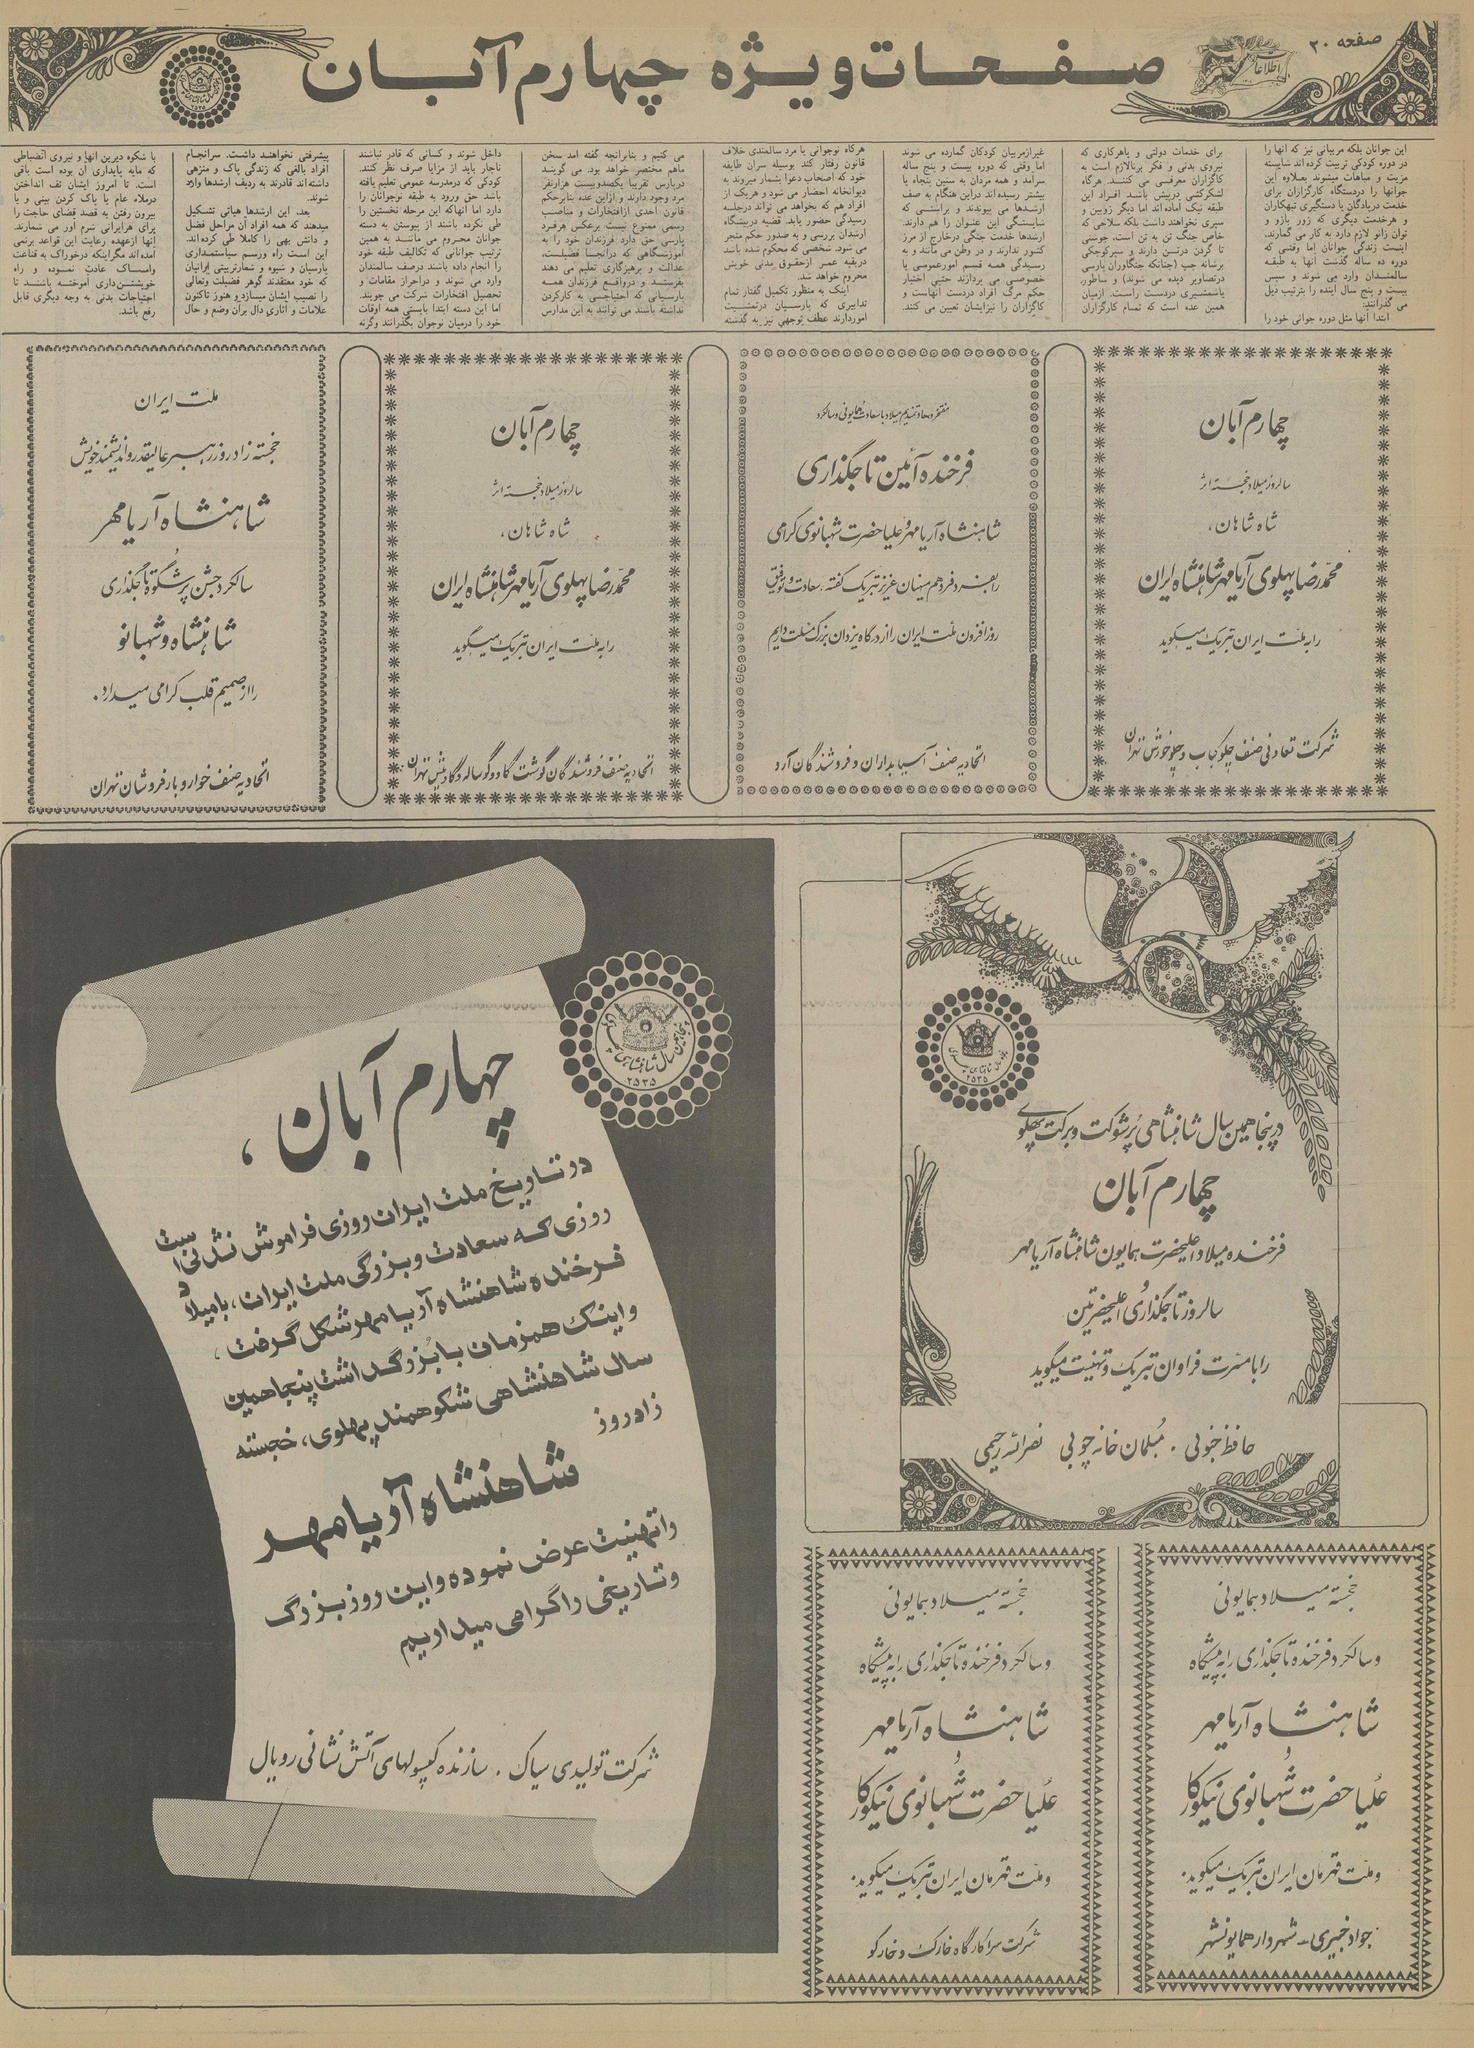 صفحه ۲۰
اطلاعات
صفحات ویژه چهارم آبان
۲۵۳۵
این جوانان بلکه مربیانی نیز که آنها را
در دوره کودکی تربیت کرده اند شایسته
مزیت و مباهات میشوند بعلاوه این
جوانها را دردستگاه کارگزاران برای
خدمت دریادگان یا دستگیری تبهکاران
و هرخدمت دیگری که زور بازو و
توان زانو لازم دارد به کار می گمارند.
اینست زندگی جوانان اما وقتی که
دوره ده ساله گذشت آنها به طبقه
سالمندان وارد می شوند و سپس
بیست و پنج سال آینده را بترتیب ذیل
می گذرانند:
ابتدا آنها مثل دوره جوانی خود را
برای خدمات دولتی و یاهرکاری که
نیروی بدنی و فکر برنالازم است به
کاگزاران معرفی می کنند. هرگاه
لشکرکشی درپیش باشد افراد این
طبقه نیک آماده اند اما دیگر زوبین و
تیری نخواهند داشت بلکه سلاحی که
خاص جنگ تن به تن است. جوسنی
تا گردن درتین دارند و سپرکوچکی
برشانه چپ (چنانکه جنگاوران پارسی
درتصاویر دیده می شوند) و ساطور
یاشمشیری دردست راست. ازمیان
همین عده است که تمام کارگزاران
غیرازمربیان کودکان گمارده می شوند
اما وقتی که دوره بیست و پنج ساله
سرآمد و همه مردان به سنین پنجاه یا
بیشتر رسیده اند دراین هنگام به صف
ارشدها می پیوندند و براستی که
شایستگی این عنوان را هم دارند.
ارشدها خدمت جنگی درخارج از مرز
کشور ندارند و در وطن می مانند و به
رسیدگی همه قسم امورعمومی یا
خصوصی می پردازند حتی اختیار
حکم مرگ افراد دردست آنهاست و
کاگزاران را نیزایشان تعیین می کنند.
هرگاه نوجوانی یا مرد سالمندی خلاف
قانون رفتار کند بوسیله سران طایفه
خود که اصحاب دعوا بشمار میروند به
دیوانخانه احضار می شود و هریک از
افراد هم که بخواهد می تواند درجلسه
رسیدگی حضور یابد. قضیه درپیشگاه
ارشدان بررسی و به صدور حکم منجر
می شود. شخصی که محکوم شده باشد
دربقیه عمر ازحقوق مدنی خویش
محروم خواهد شد.
اینک به منظور تکمیل گفتار تمام
تدابیری که پارسیان درتمشیت
اموردارند عطف توجهی نیز به گذشته
می کنیم و بنابرآنچه گفته آمد سخن
ماهم مختصر خواهد بود. می گویند
درپارس تقریبا یکصدوبیست هزارنفر
مرد وجود دارند و ازاین عده بنابرحکم
قانون احدی ازافتخارات و مناصب
رسمی ممنوع نیست برعکس هرفرد
پارسی حق دارد فرزندان خود را به
آموزشگاهی که درآنجا فضیلت،
عدالت و پرهیزگاری تعلیم می دهند
بفرستد و درواقع فرزندان همه
پارسیانی که احتیاجی به کارکردن
نداشته باشند می توانند به این مدارس
داخل شوند و کسانی که قادر نباشند
ناچار باید از مزایا صرف نظر کنند.
کودکی که درمدرسه عمومی تعلیم یافته
باشد حق ورود به طبقه نوجوانان را
دارد اما آنهاکه این مرحله نخستین را
طی نکرده باشند از پیوستن به دسته
جوانان محروم می مانند به همین
ترتیب جوانانی که تکالیف طبقه خود
را انجام داده باشند درصف سالمندان
وارد می شوند و دراحراز مقامات و
تحصیل افتخارات شرکت می جویند.
اما این دسته ابتدا بایستی همه اوقات
خود را درمیان نوجوان بگذرانند وگرنه
پیشرفتی نخواهند داشت. سرانجام
افراد بالغی که زندگی پاک و منزهی
داشته اند قادرند به ردیف ارشدها وارد
شوند.
بعد، این ارشدها هیأتی تشکیل
میدهند که همه افراد آن مراحل فضل
و دانش بهی را کاملا طی کرده اند.
این است راه ورسم سیاستمداری
پارسیان و شیوه و شعارتربیتی ایرانیان
که خود معتقدند گوهر فضیلت وتعالی
را نصیب ایشان میسازد و هنوز تاکنون
علامات و آثاری دال برآن وضع و حال
با شکوه دیرین آنها و نیروی انضباطی
که مایه پایداری آن بوده است باقی
است. تا امروز ایشان تف انداختن
درملاء عام یا پاک کردن بینی و یا
بیرون رفتن به قصد قضای حاجت را
برای هرایرانی شرم آور می شمارند.
آنها ازعهده رعایت این قواعد برنمی
آمده اند مگراینکه درخوراک به قناعت
وامساک عادت نموده و راه
خویشتن‌داری آموخته باشند تا
احتیاجات بدنی به وجه دیگری قابل
رفع باشد.
چهارم آبان
سالروز میلاد خجسته اثر
شاه شاهان،
محمدرضا پهلوی آریامهر شاهنشاه ایران
را به ملت ایران تبریک میگوید
شرکت تعاونی صنف چلوکباب و چلوخورش تهران
فرخنده آئین تاجگذاری
شاهنشاه آریامهر و علیاحضرت شهبانوی گرامی
را بفرد فرد هم میهنان عزیز تبریک گفته، سعادت و توفیق
روزافزون ملت ایران را از درگاه یزدان بزرگ مسئلت داریم
اتحادیه صنف آسیابداران و فروشندگان آرد
چهارم آبان
سالروز میلاد خجسته اثر
شاه شاهان،
محمدرضا پهلوی آریامهر شاهنشاه ایران
را به ملت ایران تبریک میگوید
اتحادیه صنف فروشندگان گوشت گاو و گوساله و گاومیش تهران.
ملت ایران
خجسته زادروز رهبر عالیقدر و اندیشمند خویش
شاهنشاه آریامهر
و
سالگرد جشن پرشکوه تاجگذاری
شاهنشاه و شهبانو
را از صمیم قلب گرامی میدارد.
اتحادیه صنف خواروبار فروشان تهران
۲۵۳۵
در پنجاهمین سال شاهنشاهی پرشوکت و برکت پهلوی
چهارم آبان
فرخنده میلاد اعلیحضرت همایون شاهنشاه آریامهر
و
سالروز تاجگذاری اعلیحضرتین
را با مسرت فراوان تبریک و تهنیت میگوید
حافظ جنوبی . مبلمان خانه چوبی نصراله رحیمی
پنجاهمین سال شاهنشاهی پهلوی
۲۵۳۵
چهارم آبان،
در تاریخ ملت ایران روزی فراموش نشدنی است
روزی که سعادت و بزرگی ملت ایران، با میلاد
فرخنده شاهنشاه آریامهر شکل گرفت،
و اینک همزمان با بزرگداشت پنجاهمین
سال شاهنشاهی شکوهمند پهلوی، خجسته
زادروز
شاهنشاه آریامهر
را تهنیت عرض نموده و این روز بزرگ
و تاریخی را گرامی میداریم
شرکت تولیدی سیاک . سازنده کپسولهای آتش نشانی رویال
خجسته میلاد همایونی
و سالگرد فرخنده تاجگذاری را به پیشگاه
شاهنشاه آریامهر
و
علیاحضرت شهبانوی نیکوکار
و ملت قهرمان ایران تبریک میگوید.
جواد خبیری - شهردار همایونشهر
خجسته میلاد همایونی
و سالگرد فرخنده تاجگذاری را به پیشگاه
شاهنشاه آریامهر
و
علیاحضرت شهبانوی نیکوکار
و ملت قهرمان ایران تبریک میگوید.
شرکت سراکارگاه خارک و خارکو